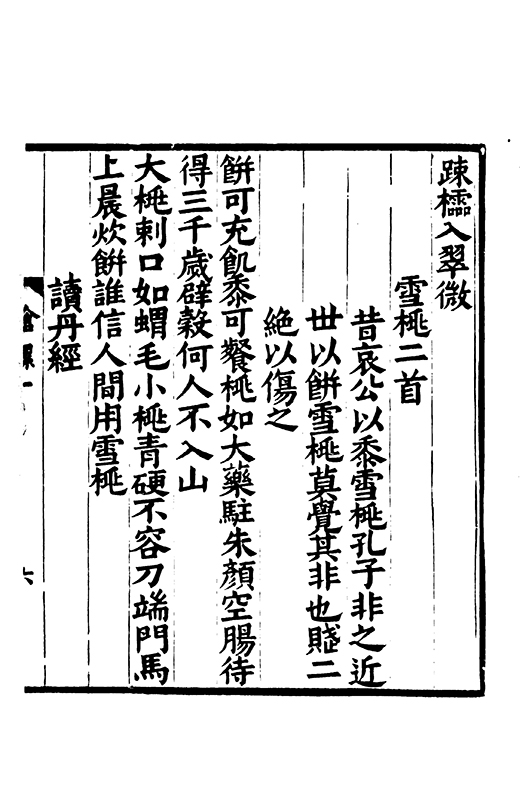 疎櫺入翠微
雪桃二首
昔哀公以黍雪桃孔子非之近
世以餠雪桃莫覺其非也賦二
絶以傷之
餠可充飢黍可餐桃如大藥駐朱顏空腸待
得三千歲辟穀何人不入山
大桃刺口如蝟毛小桃青硬不容刀端門馬
上晨炊餠誰信人間用雪桃
讀丹經
六